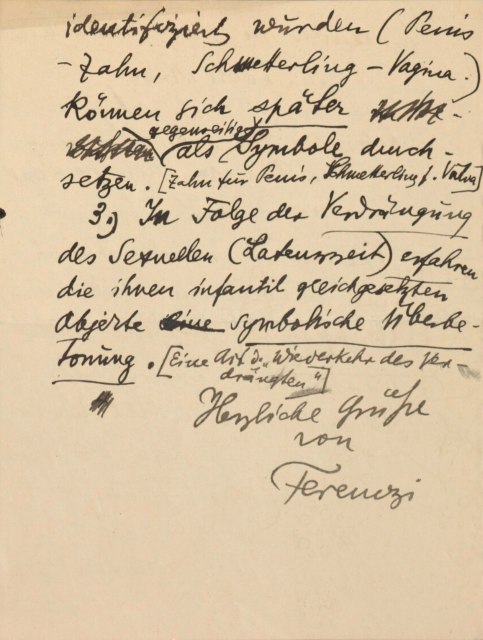 identifiziert wurden (Penis
- Zahn, Schmetterling – Vagina.)
können sich später
gegenseitig
als Symbole durch-
setzen. [Zahn für Penis, Schmetterling f. Vulva]
3.) In Folge der Verdrängung
des Sexuellen (Latenzzeit) erfahren
die ihnen infantil gleichgesetzten
Objecte eine symbolische Überbe-
tonung. [Eine Art d. „Wiederkehr des Ver-
drängten"]
Herzliche Grüße
von
Ferenczi